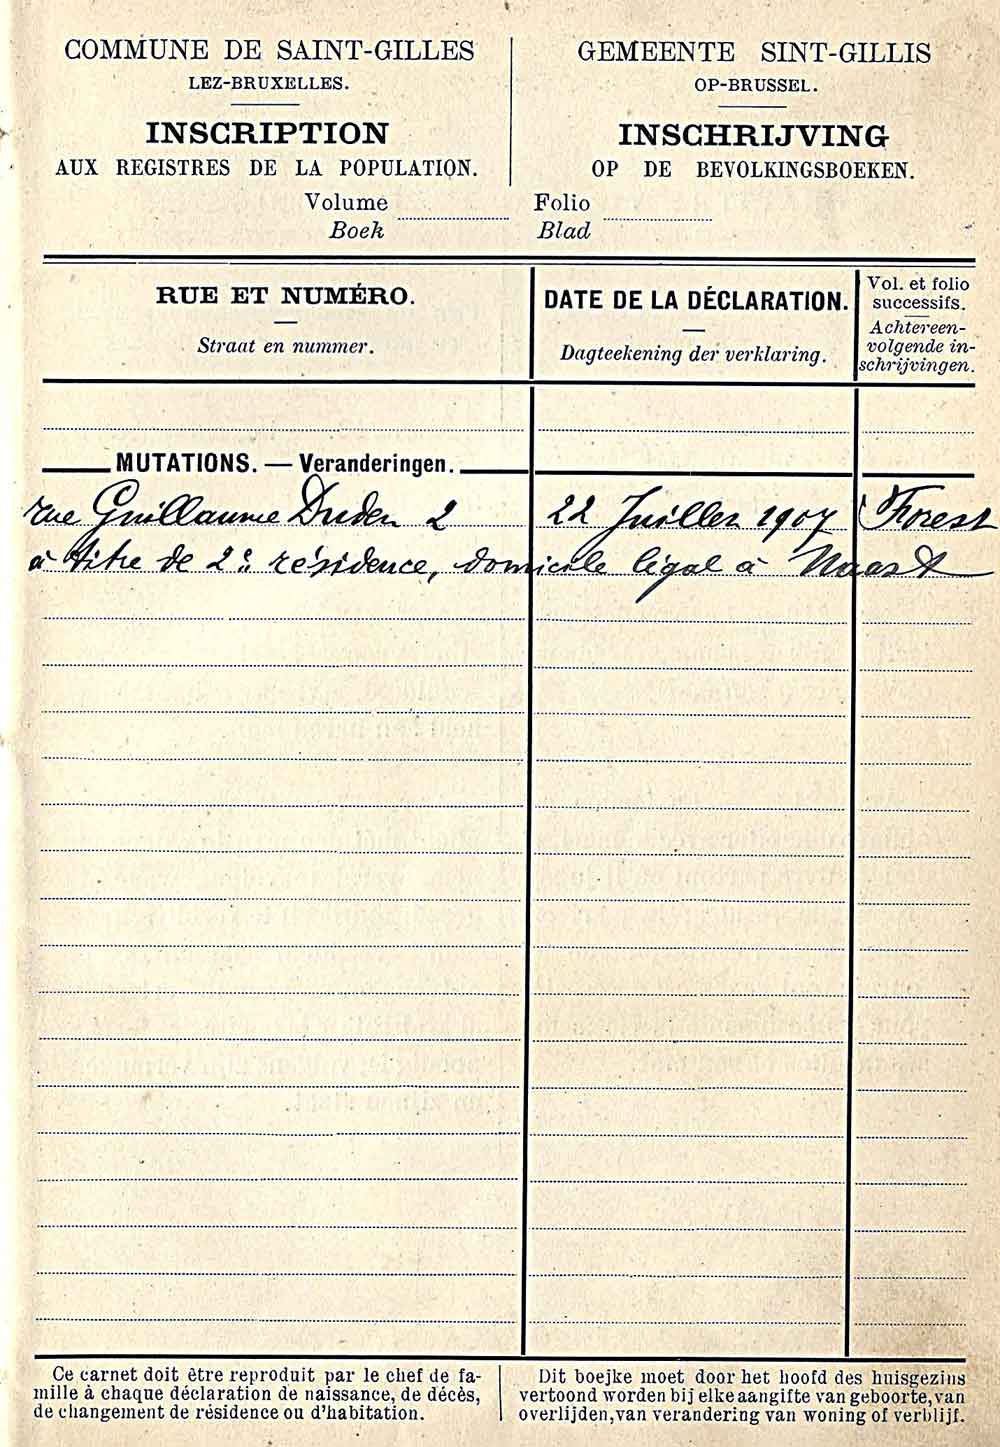 COMMUNE DE SAINT-GILLES
LEZ-BRUXELLES.
INSCRIPTION
AUX REGISTRES DE LA POPULATION.
GEMEENTE SINT-GILLIS
OP-BRUSSEL.
INSCHRIJVING
OP DE BEVOLKINGSBOEKEN.
Volume Folio
Boek Blad
RUE ET NUMÉRO.
Straat en nummer.
DATE DE LA DÉCLARATION.
Dagteekening der verklaring.
Vol. et folio
successifs.
Achtereen-
volgende in-
schrijvingen.
MUTATIONS. — Veranderingen.
rue Guillaume Duden 2 22 Juillet 1907 Forest
à titre de 2e résidence, domicile légal à Naast
Ce carnet doit être reproduit par le chef de fa-
mille à chaque déclaration de naissance, de décès,
de changement de résidence ou d'habitation.
Dit boejke moet door het hoofd des huisgezins
vertoond worden bij elke aangifte van geboorte, van
overlijden, van verandering van woning of verblijf.